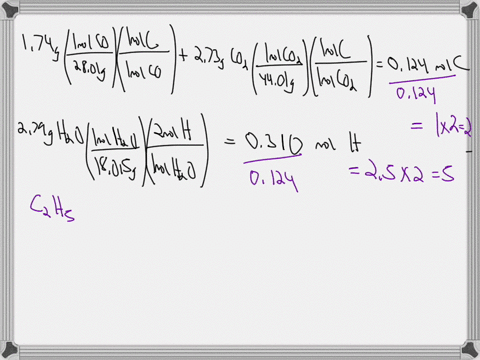 1.74g (1molCO/28.01g)(1molC/1molCO) + 2.73g CO₂ (1molCO₂/44.01g)(1molC/1molCO₂) = 0.124 molC
0.124
= 1x2=2
2.79g H₂O (1molH₂O/18.015g)(2molH/1molH₂O) = 0.310 mol H
0.124
= 2.5 x 2 = 5
C₂H₅